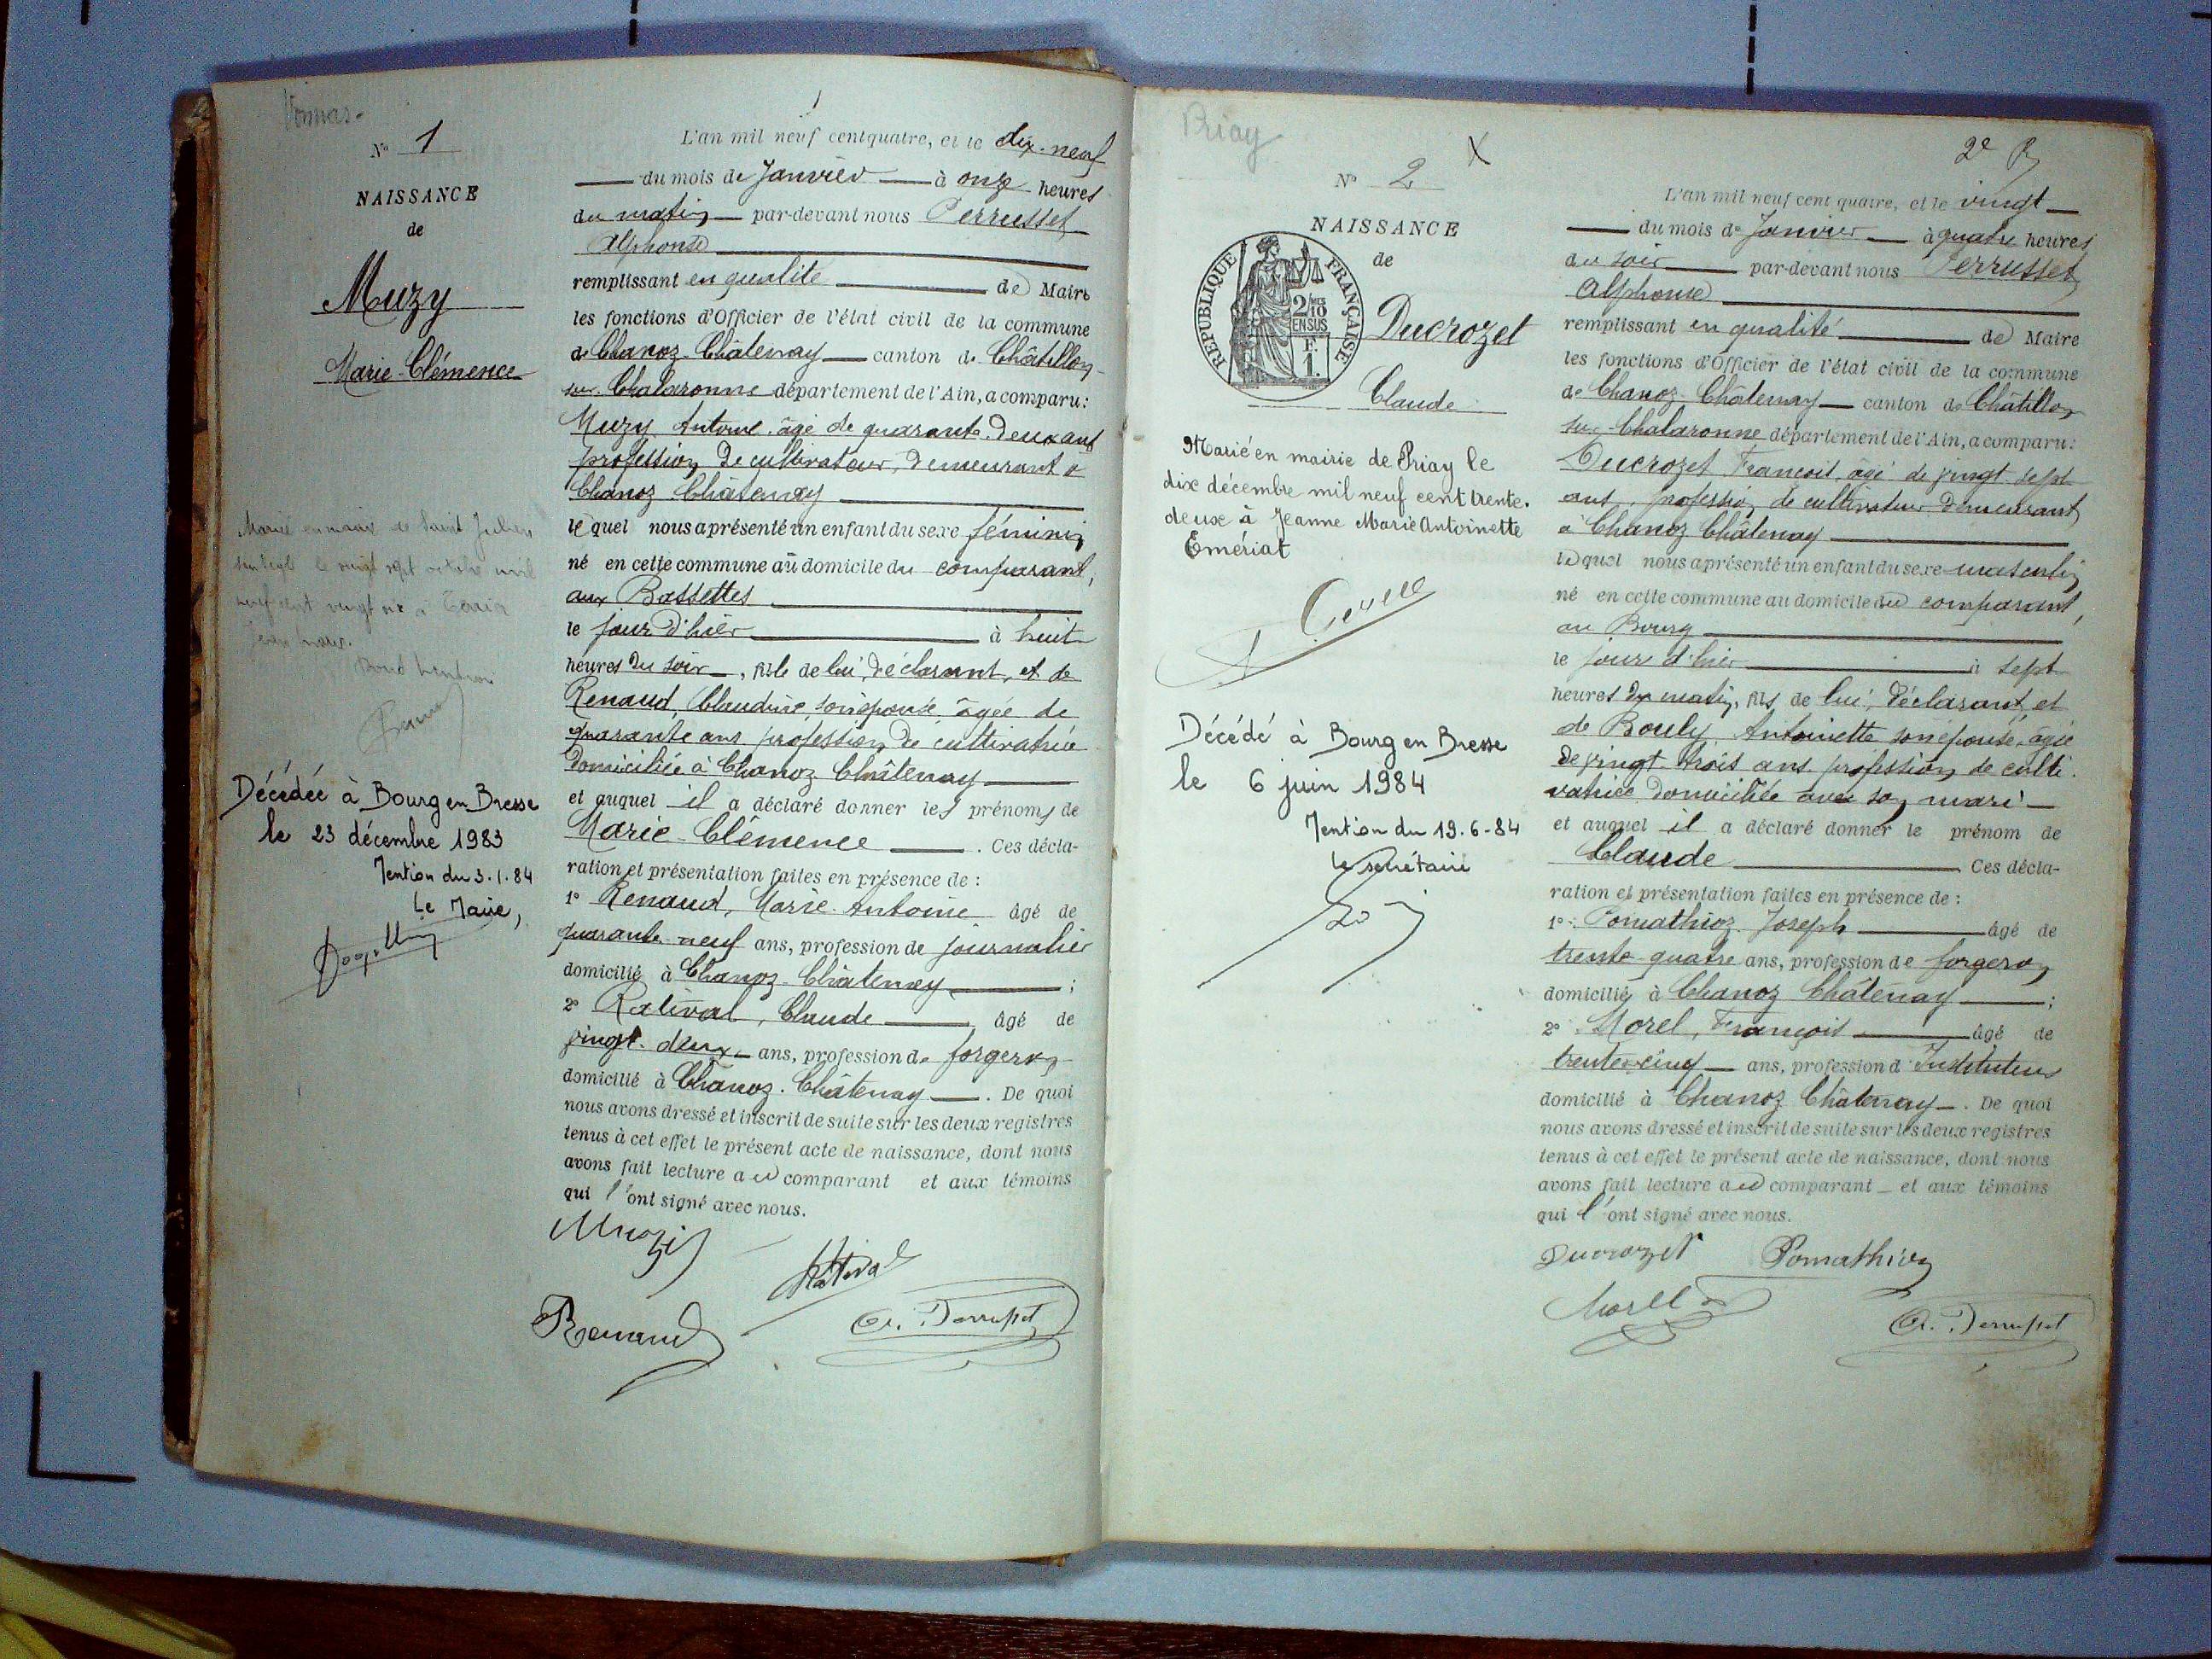 Vonnas.
Nº 1
NAISSANCE
de
Muzy
Marie-Clémence
Marié en mairie de Saint Julien
sur le vingt sept octobre mil
neuf cent vingt six à
Décédée à Bourg en Bresse
le 23 décembre 1983
Mention du 3.1.84
Le Maire,
L'an mil neuf cent quatre, et le dix-neuf
du mois de Janvier à onze heures
du matin par-devant nous Perrusset
Alphonse
remplissant en qualité de Maire
les fonctions d'Officier de l'état civil de la commune
de Chanoz-Châtenay canton de Châtillon-
sur-Chalaronne département de l'Ain, a comparu:
Muzy Antoine âgé de quarante-deux ans
profession de cultivateur, demeurant à
Chanoz Châtenay
lequel nous a présenté un enfant du sexe féminin
né en cette commune au domicile du comparant,
aux Bassettes
le jour d'hier à huit
heures du soir, fille de lui, déclarant, et de
Renaud, Claudine, son épouse, âgée de
quarante ans profession de cultivatrice
domiciliée à Chanoz Châtenay
et auquel il a déclaré donner les prénoms de
Marie-Clémence. Ces décla-
ration et présentation faites en présence de :
1º Renaud, Marie-Antoine âgé de
quarante-neuf ans, profession de journalier
domicilié à Chanoz-Châtenay ;
2º Rativat, Claude âgé de
vingt-deux ans, profession de forgeron
domicilié à Chanoz-Châtenay. De quoi
nous avons dressé et inscrit de suite sur les deux registres
tenus à cet effet le présent acte de naissance, dont nous
avons fait lecture au comparant et aux témoins
qui l'ont signé avec nous.
Renaud
A. Perrusset
Priay
Nº 2
X
NAISSANCE
de
RÉPUBLIQUE FRANÇAISE
2/10
EN SUS
F.
1.
Ducrozet
Claude
Marié en mairie de Priay le
dix décembre mil neuf cent trente-
deux à Jeanne Marie Antoinette
Emériat
Décédé à Bourg en Bresse
le 6 juin 1984
Mention du 19-6-84
Le secrétaire
2e
L'an mil neuf cent quatre, et le vingt
du mois de Janvier à quatre heures
du soir par-devant nous Perrusset
Alphonse
remplissant en qualité de Maire
les fonctions d'Officier de l'état civil de la commune
de Chanoz-Châtenay canton de Châtillon
sur-Chalaronne département de l'Ain, a comparu:
Ducrozet François, âgé de vingt-sept
ans, profession de cultivateur demeurant
à Chanoz Châtenay
lequel nous a présenté un enfant du sexe masculin
né en cette commune au domicile du comparant,
au Bourg
le jour d'hier à sept
heures du matin, fils de lui, déclarant, et
de Bouly, Antoinette son épouse, âgée
de vingt-trois ans profession de culti-
vatrice domiciliée avec son mari
et auquel il a déclaré donner le prénom de
Claude Ces décla-
ration et présentation faites en présence de :
1º Pomathioz Joseph âgé de
trente-quatre ans, profession de forgeron
domicilié à Chanoz Châtenay ;
2º Morel, François âgé de
trente-cinq ans, profession d'Instituteur
domicilié à Chanoz Châtenay. De quoi
nous avons dressé et inscrit de suite sur les deux registres
tenus à cet effet le présent acte de naissance, dont nous
avons fait lecture au comparant et aux témoins
qui l'ont signé avec nous.
Ducrozet Pomathioz
Morel
A. Perrusset